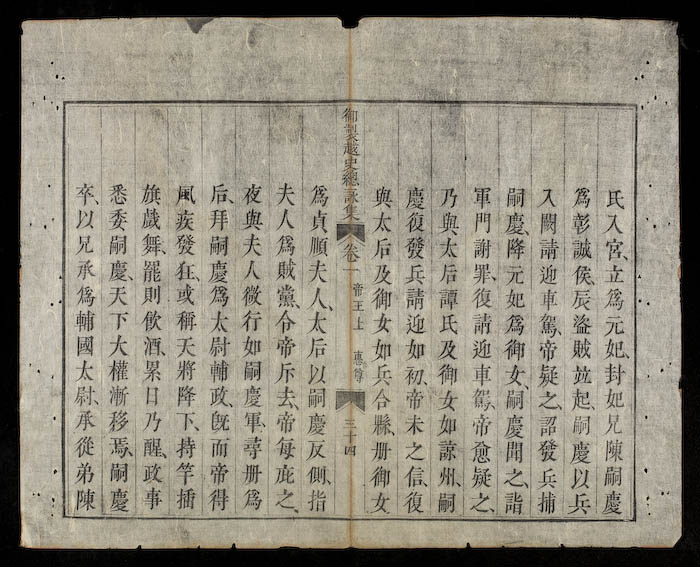 氏入宮、立爲元妃、封妃兄陳嗣慶
爲彰誠侯、辰盜賊竝起、嗣慶以兵
入闕請迎車駕、帝疑之、詔發兵捕
嗣慶、降元妃爲御女、嗣慶聞之、詣
軍門謝罪、復請迎車駕、帝愈疑之、
乃與太后譚氏及御女如諒州、嗣
慶復發兵請迎如初、帝未之信、復
與太后及御女如兵合縣、册御女
御製越史總詠集
卷一
帝王上
惠尊
三十四
爲貞順夫人、太后以嗣慶反側、指
夫人爲賊黨、令帝斥去、帝每庇之、
夜與夫人微行如嗣慶軍、尋册爲
后、拜嗣慶爲太尉輔政、旣而帝得
風疾發狂、或稱天將降下、持竿插
旗戲舞、罷則飲酒、累日乃醒、政事
悉委嗣慶、天下大權漸移焉、嗣慶
卒、以兄承爲輔國太尉、承從弟陳